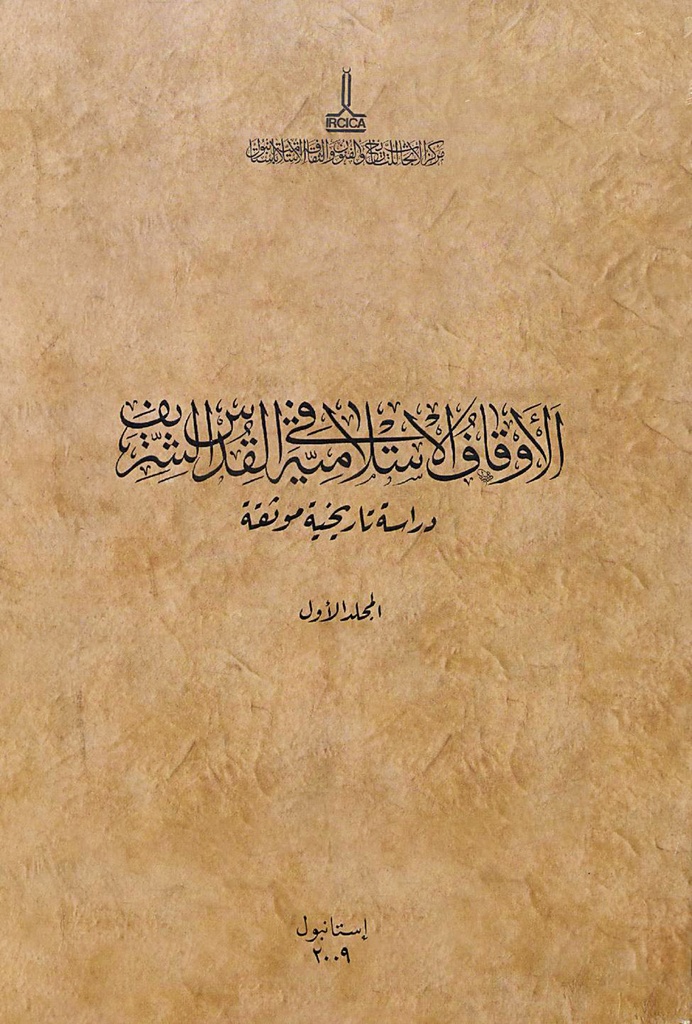 IRCICA
مركز الأبحاث للتاريخ والفنون والثقافة الإسلامية باستانبول
الأوقاف الإسلامية في القدس الشريف
دراسة تاريخية موثقة
المجلد الأول
إستانبول
٢٠٠٩